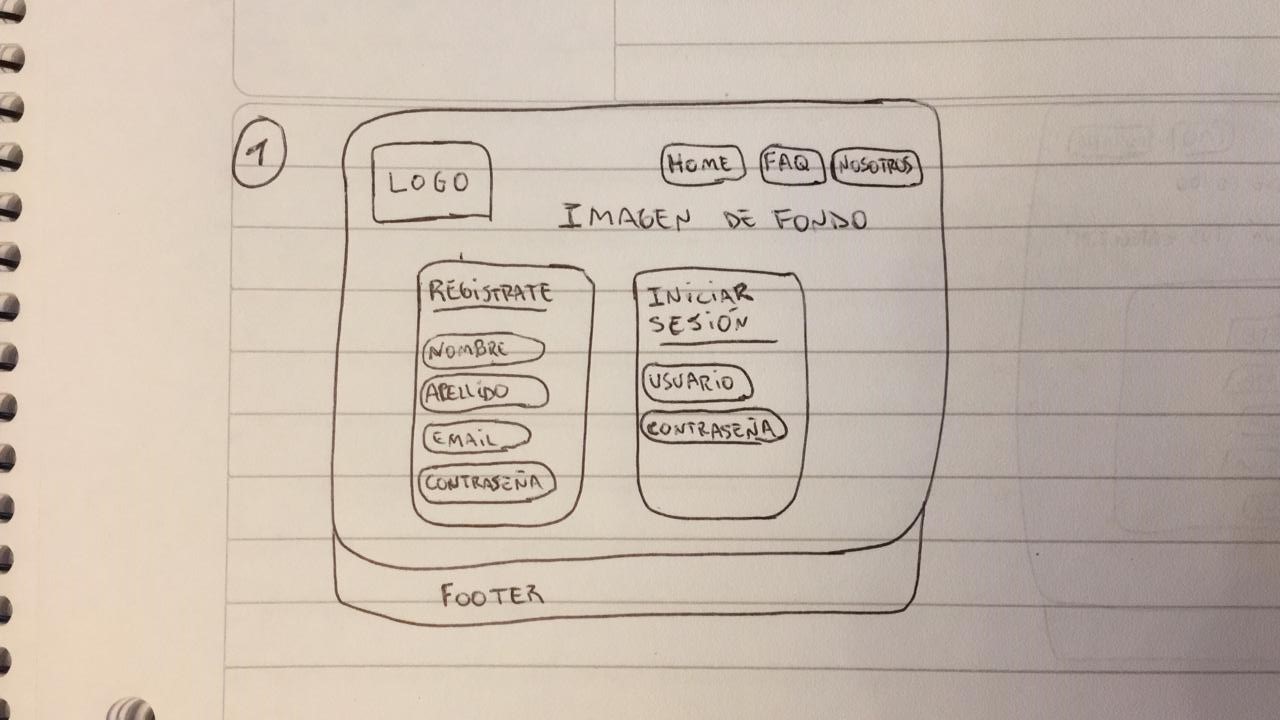 1
LOGO
HOME FAQ NOSOTROS
IMAGEN DE FONDO
REGISTRATE
NOMBRE
APELLIDO
EMAIL
CONTRASEÑA
INICIAR
SESIÓN
USUARIO
CONTRASEÑA
FOOTER